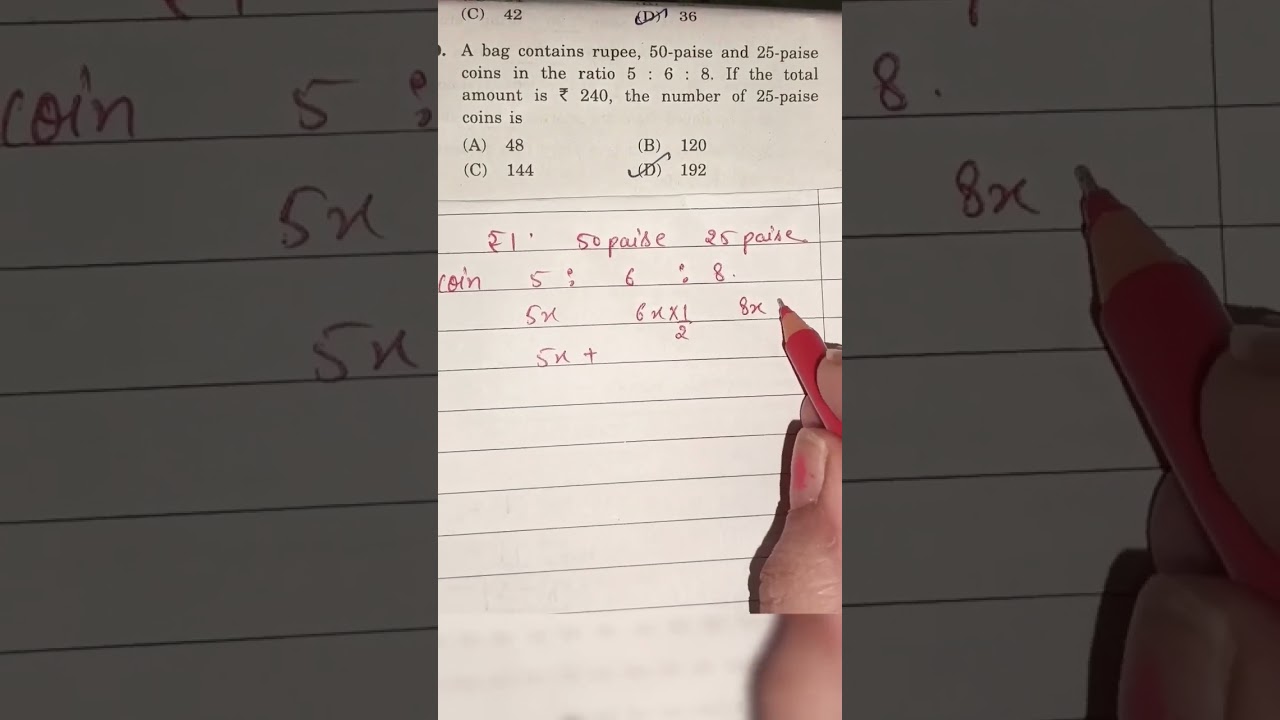 (C) 42 (D) 36
. A bag contains rupee, 50-paise and 25-paise
coins in the ratio 5 : 6 : 8. If the total
amount is ₹ 240, the number of 25-paise
coins is
(A) 48 (B) 120
(C) 144 (D) 192
₹1. 50 paise 25 paise
coin 5 : 6 : 8.
5x 6x × 1/2 8x
5x +
coin 5 : 8.
5x 8x
5x